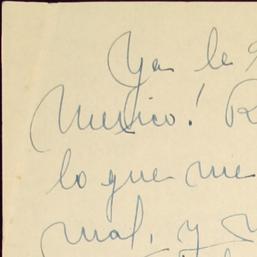 Ya le
Mexico! R
lo que me
mal, y